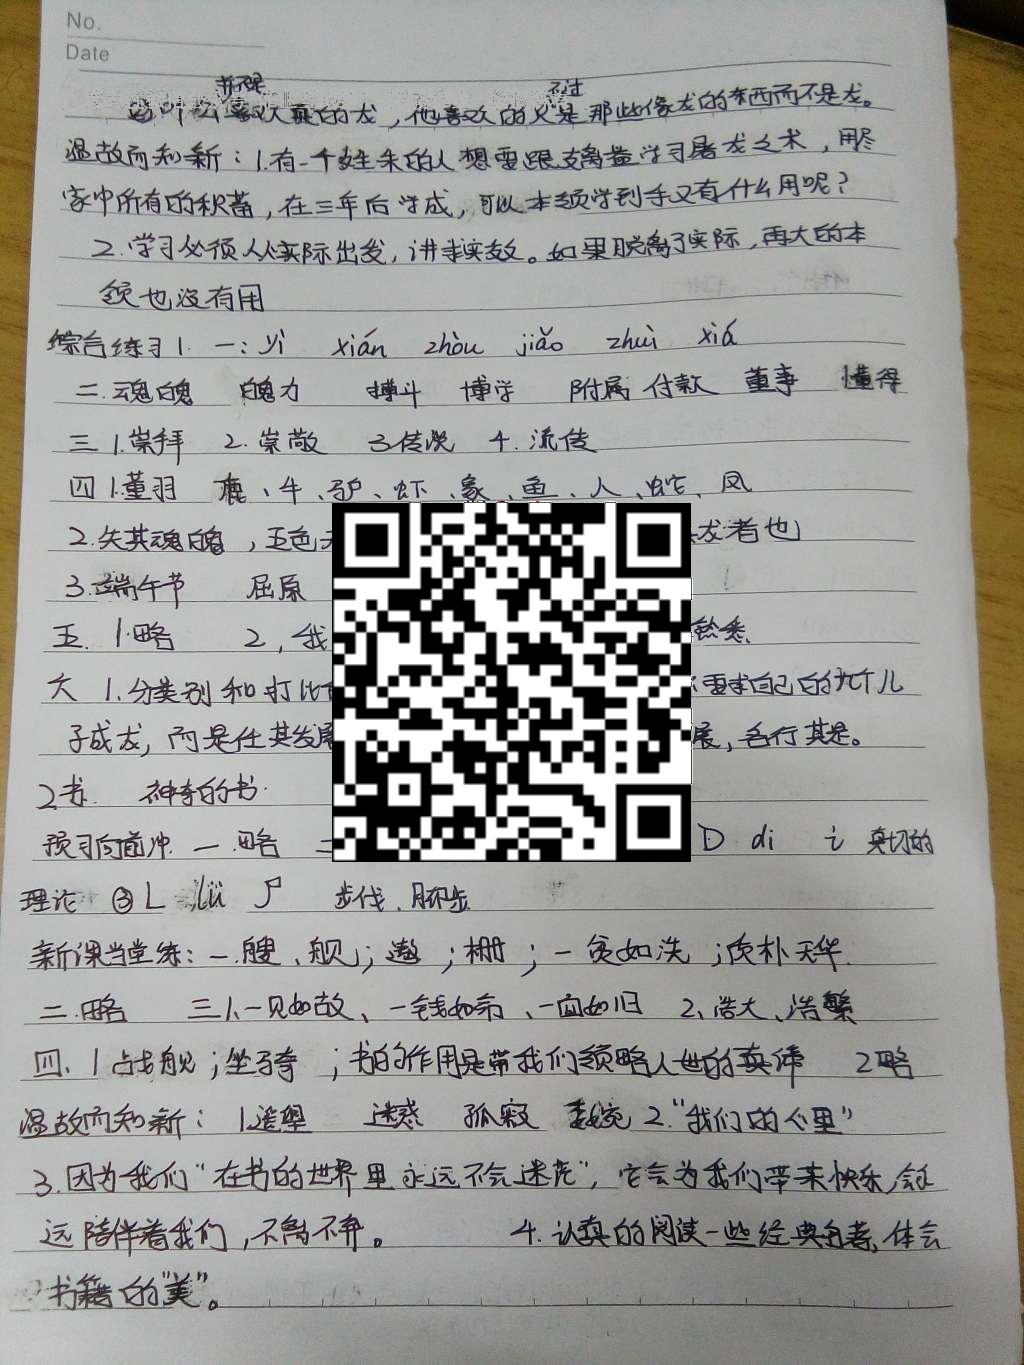 No.
Date
并不是 不过
叶公喜欢真的龙，他喜欢的只是那些像龙的东西而不是龙。
温故而知新：1.有一个姓朱的人想要跟支离益学习屠龙之术，用尽
家中所有的积蓄，在三年后学成，可以本领学到手又有什么用呢？
2.学习必须从实际出发，讲求实效。如果脱离了实际，再大的本
领也没有用
综合练习1. 一：yì xián zhòu jiǎo zhuì xiá
二.魂魄 魄力 搏斗 博学 附属 付款 董事 懂得
三 1.崇拜 2.崇敬 3.传说 4.流传
四 1.董羽 鹿、牛、驴、虾、象、鱼、人、蛇、凤
2.失其魂魄，五色无 龙者也
3.端午节 屈原
五. 1.略 2，我
六 1.分类别和打比 要求自己的九个儿
子成龙，而是任其发展 展，各行其是。
2.书. 神奇的书.
预习向前冲 一.略 二 D di i 真切的
理论 ③L lǚ 尸 步伐、脚步
新课当堂练：一.艘、舰；遨；栅；一贫如洗；质朴无华.
二.略 三1、一见如故、一钱如命、一面如旧 2、浩大、浩繁
四、1战舰；坐骑；书的作用是带我们领略人世的真谛 2略
温故而知新： 1.遥望 迷惑 孤寂 委婉 2.“我们的心里”
3.因为我们“在书的世界里永远不会迷茫”，它会为我们带来快乐，会永
远陪伴着我们，不离不弃。 4.认真的阅读一些经典名著，体会
书籍的“美”。